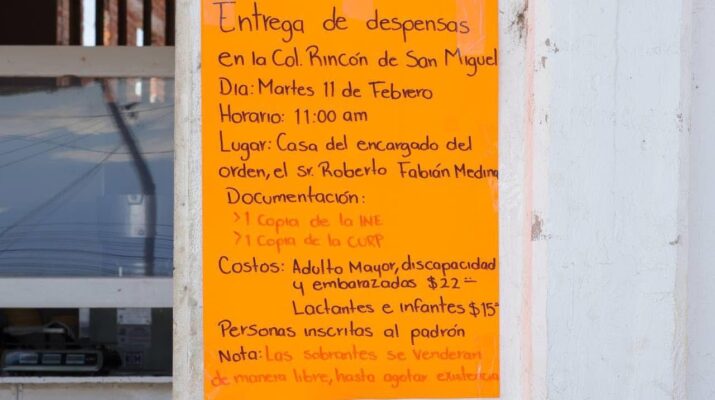 Entrega de despensas
en la Col. Rincón de San Miguel
Dia: Martes 11 de Febrero
Horario: 11:00 am
Lugar: Casa del encargado del
orden, el sr. Roberto Fabián Medina
Documentación:
>1 Copia de la INE
>1 Copia de la CURP
Costos: Adulto Mayor, discapacidad
y embarazadas $22
Lactantes e infantes $15
Personas inscritas al padrón
Nota: Las sobrantes se venderan
de manera libre, hasta agotar existencia